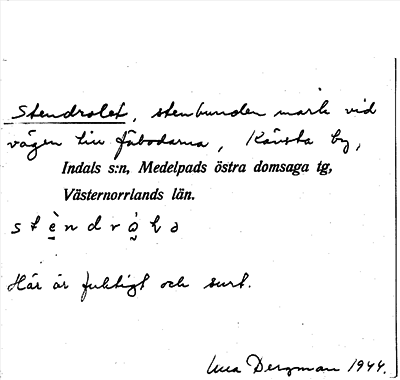 Stendrolet, stenbunden mark vid
vägen till fäbodarna, Kävsta by,
Indals s:n, Medelpads östra domsaga tg,
Västernorrlands län.
Här är fuktigt och surt.
Bergman 1944.